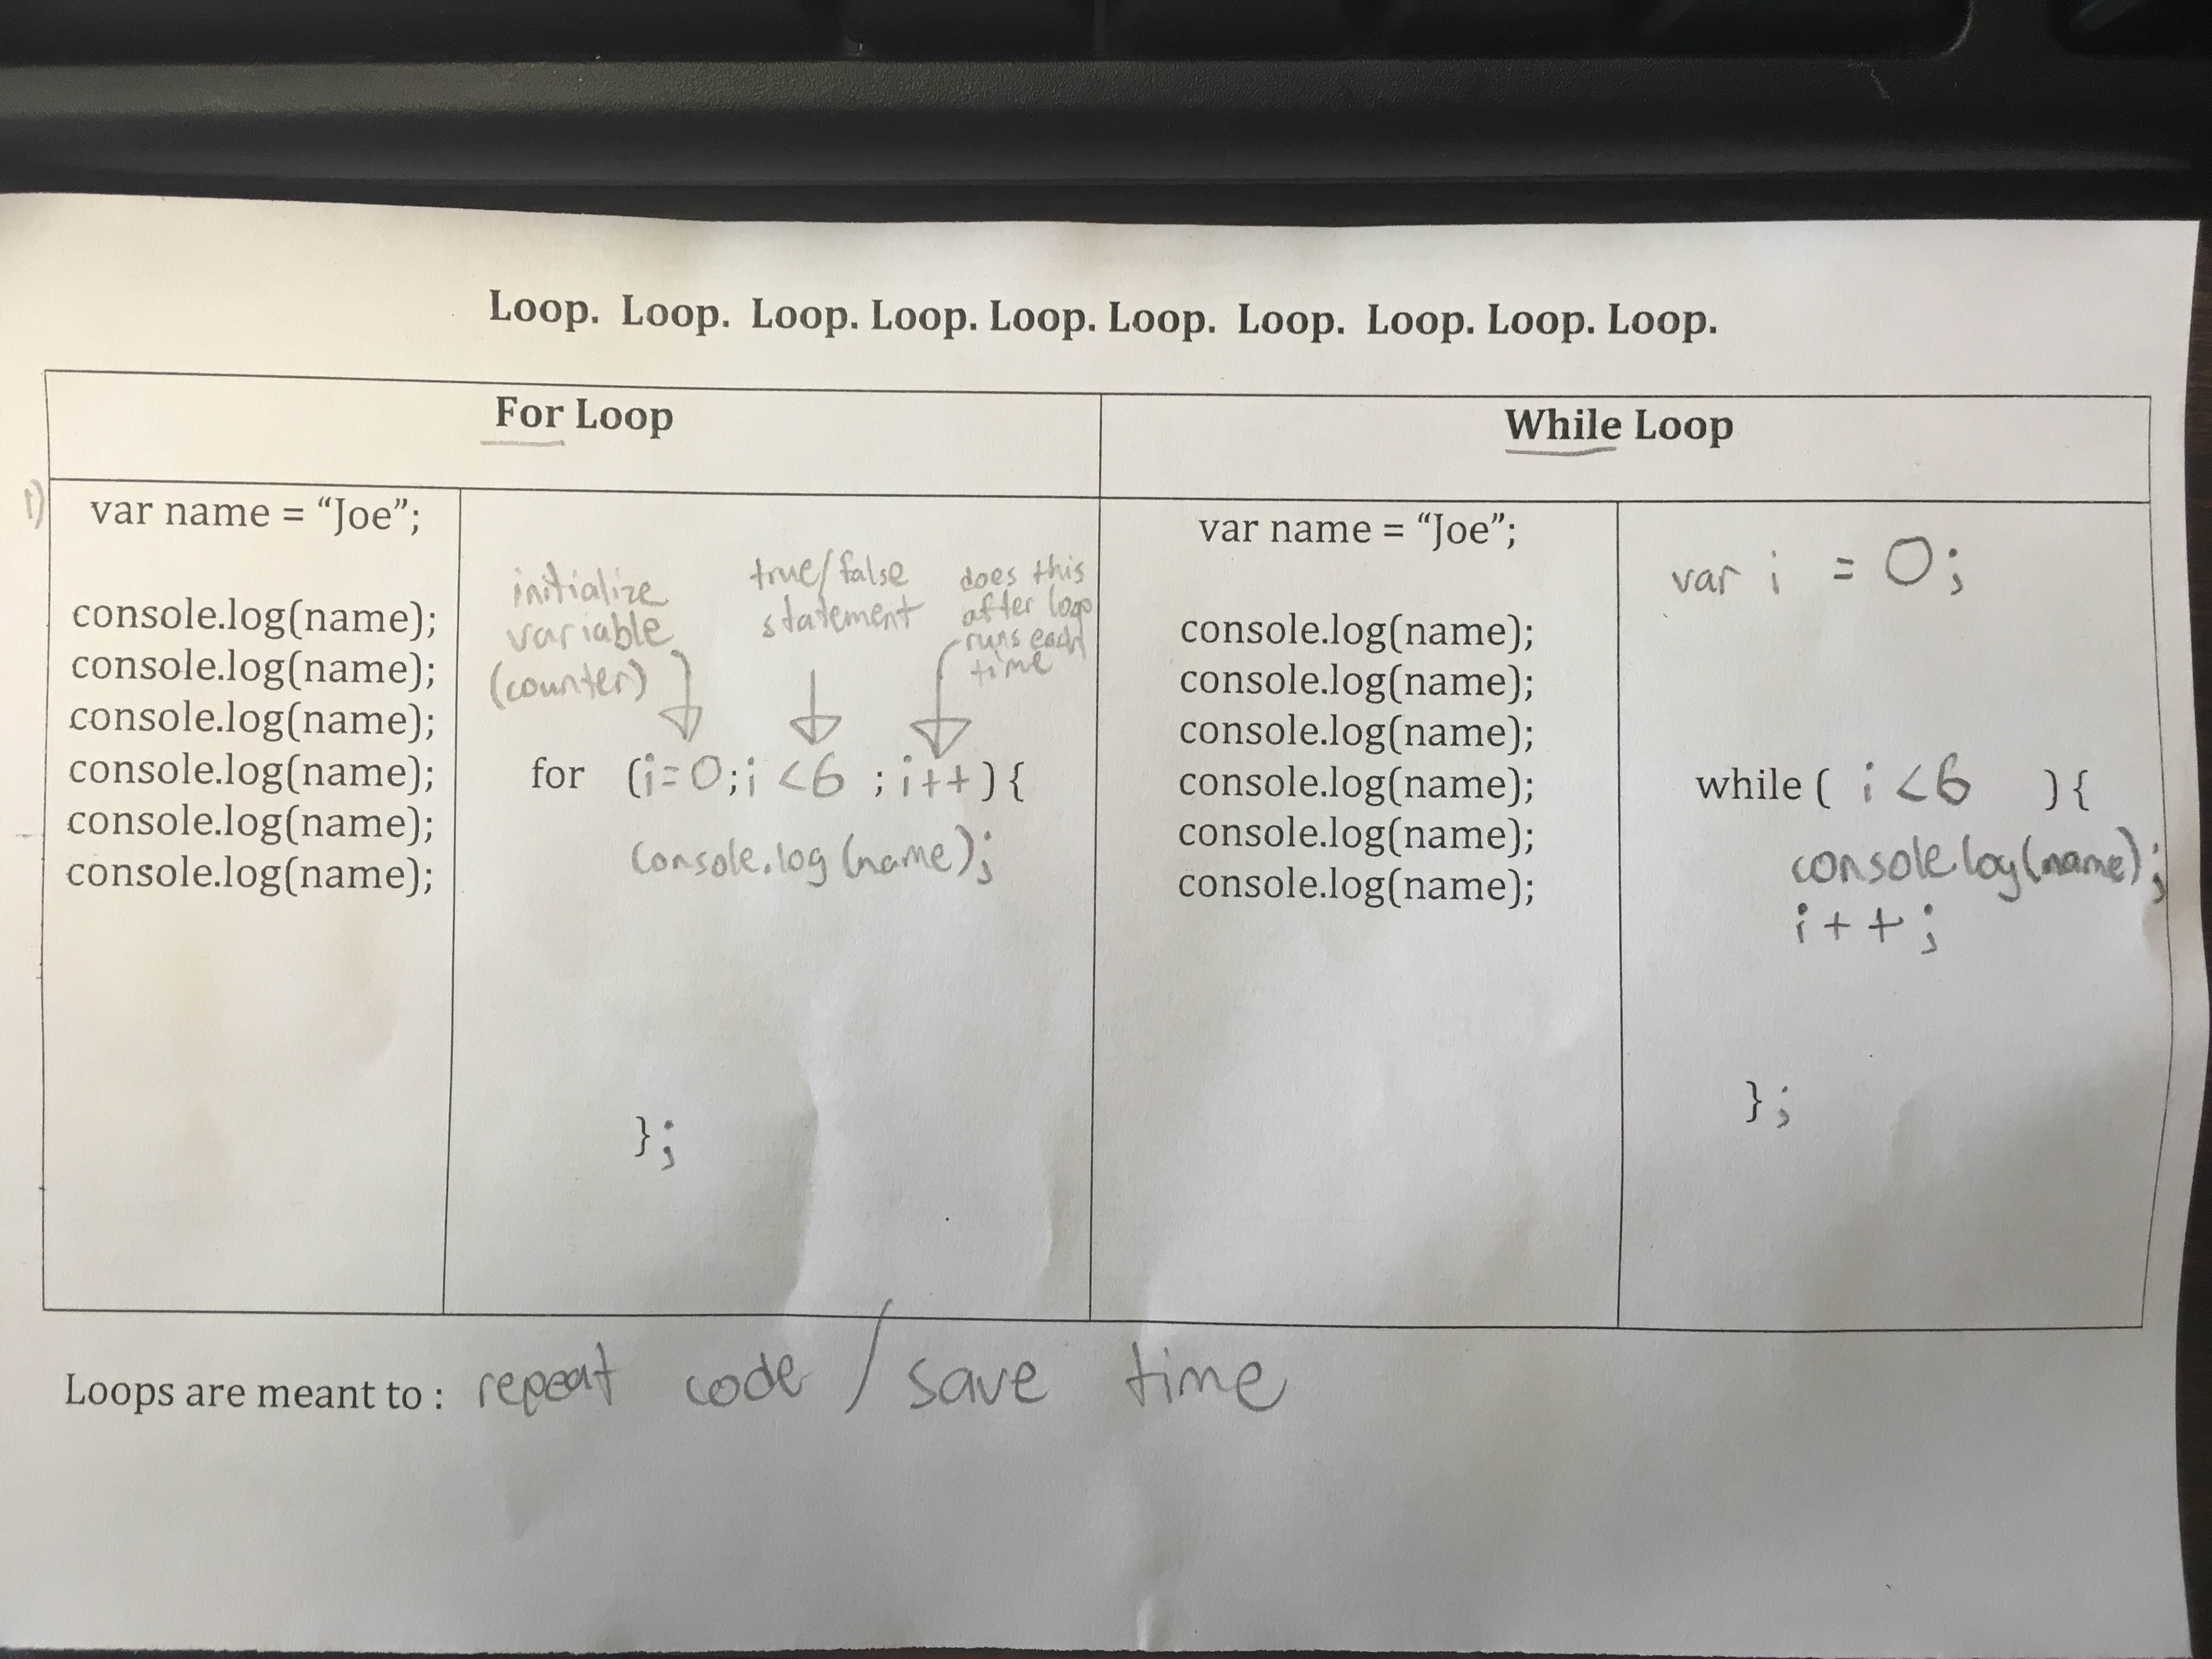 Loop. Loop. Loop. Loop. Loop. Loop. Loop. Loop. Loop. Loop.
For Loop
While Loop
1)
var name = “Joe”;
console.log(name);
console.log(name);
console.log(name);
console.log(name);
console.log(name);
console.log(name);
initialize
variable
(counter)
true/false
statement
does this
after loop
runs each
time
for (i=0;i <6 ; i++){
console.log(name);
};
var name = “Joe”;
console.log(name);
console.log(name);
console.log(name);
console.log(name);
console.log(name);
console.log(name);
var i = 0;
while ( i <6 ){
console.log(name);
i++;
};
Loops are meant to : repeat code / save time